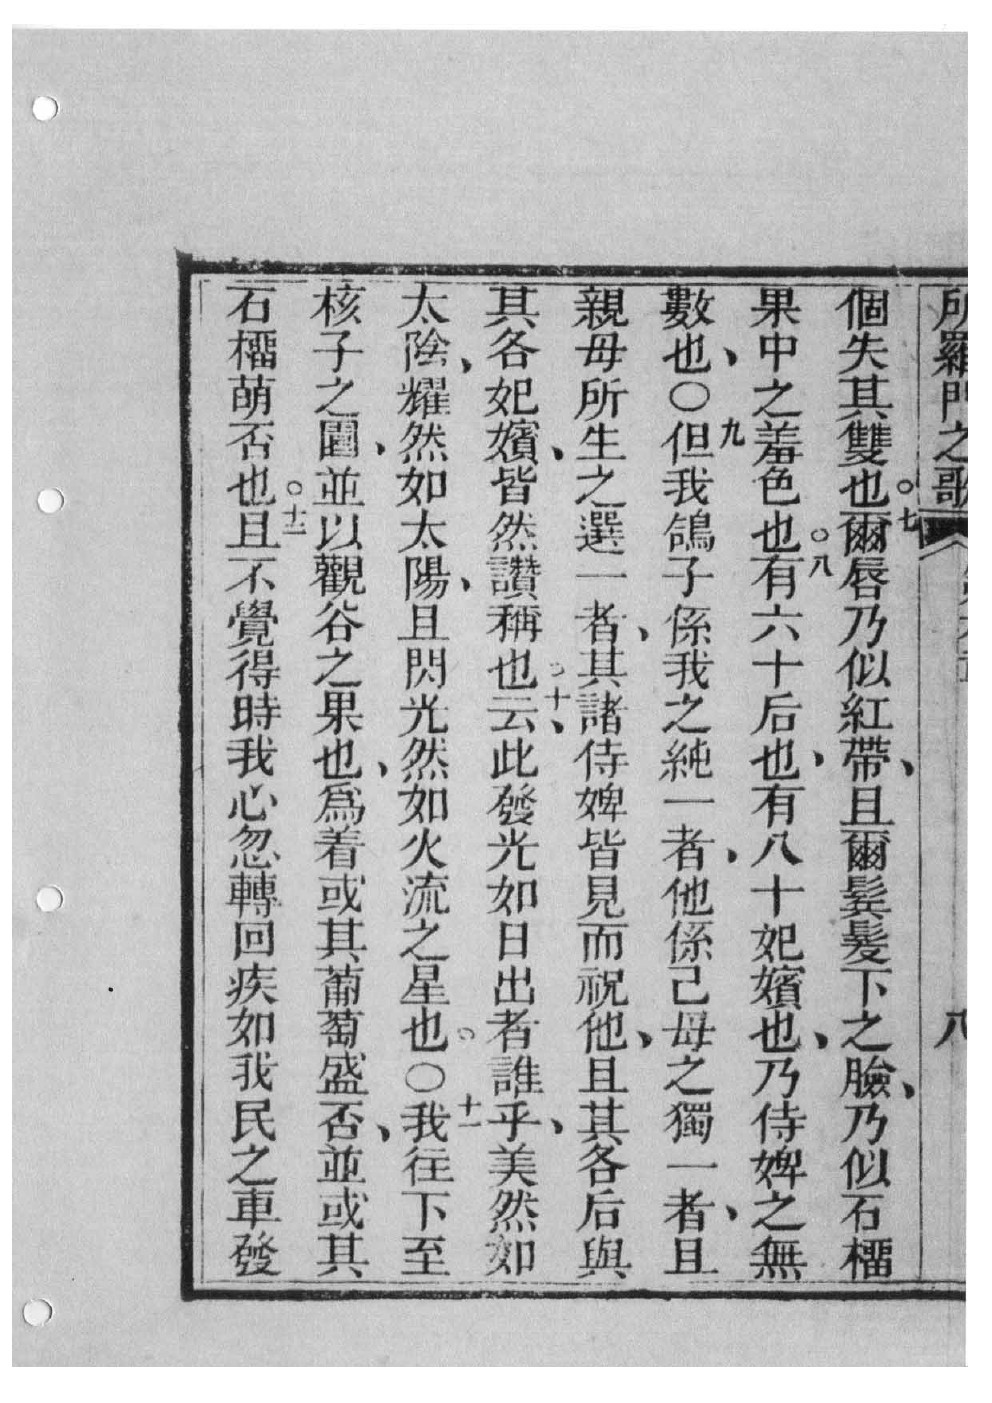 所羅門之歌 八
個失其雙也。七爾唇乃似紅帶、且爾鬂髮下之臉、乃似石橊
果中之羞色也。八有六十后也、有八十妃嬪也、乃侍婢之無
數也、〇九但我鴿子係我之純一者、他係己母之獨一者、且
親母所生之選一者、其諸侍婢皆見而祝他、且其各后與
其各妃嬪、皆然讚稱也。十云、此發光如日出者誰乎、美然如
太陰、耀然如太陽、且閃光然如火流之星也。〇十一我往下至
核子之園、並以觀谷之果也、爲着或其葡萄盛否、並或其
石橊萌否也。十二且不覺得時我心忽轉回疾如我民之車發